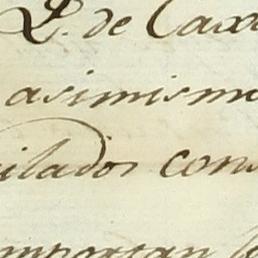 P. de Caxa
asimismo
ilados cons
importan